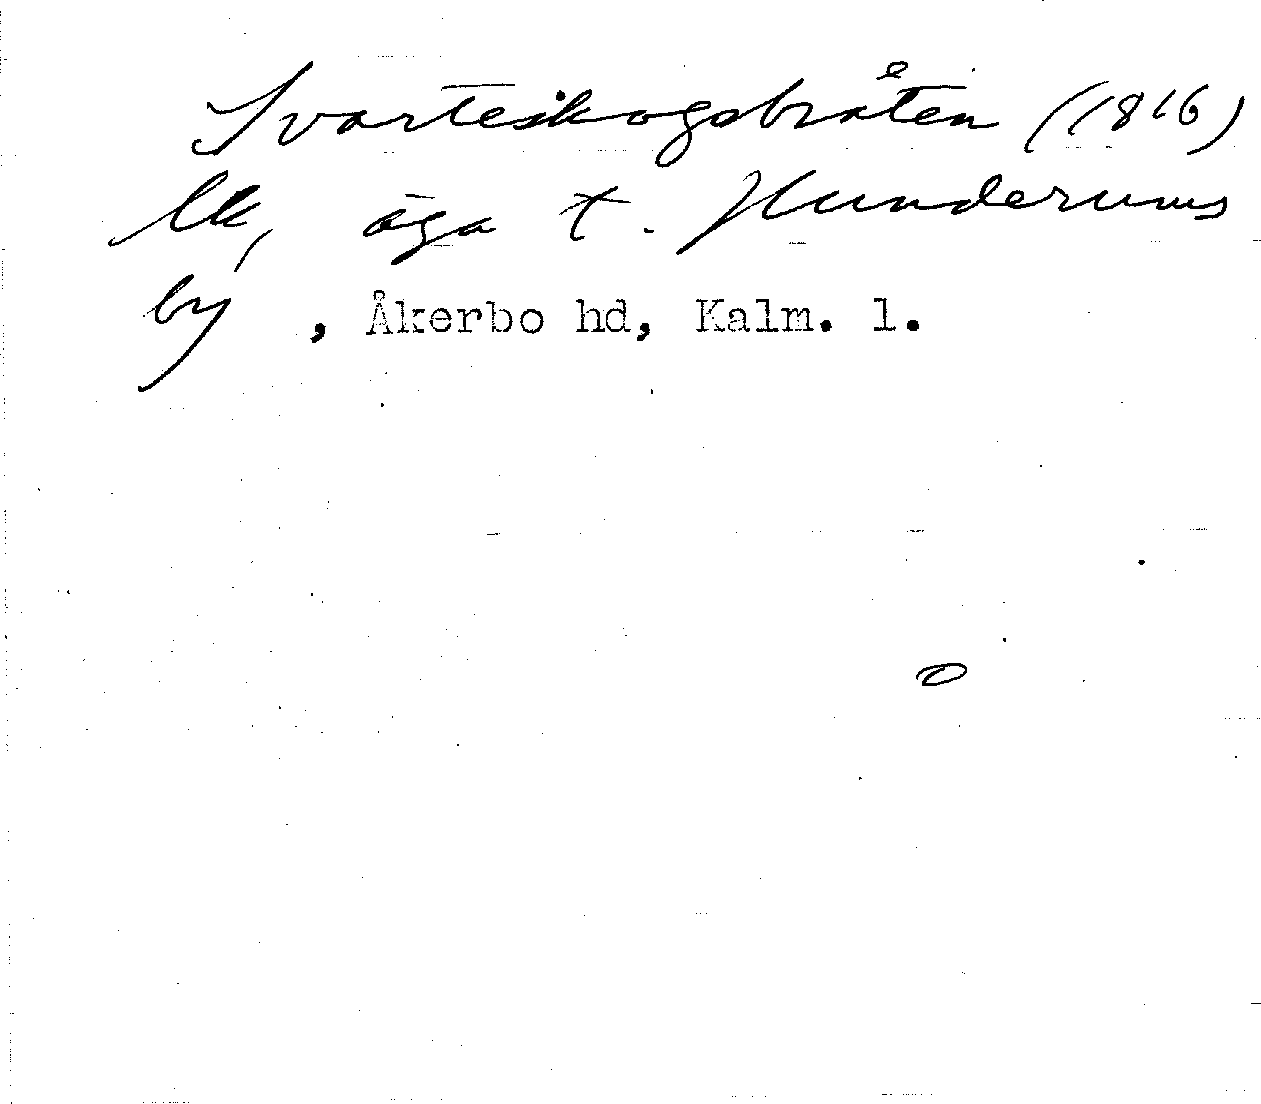 Svarteskogsbråten (1816)
lk, äga t. Hunderums
by , Åkerbo hd, Kalm. l.